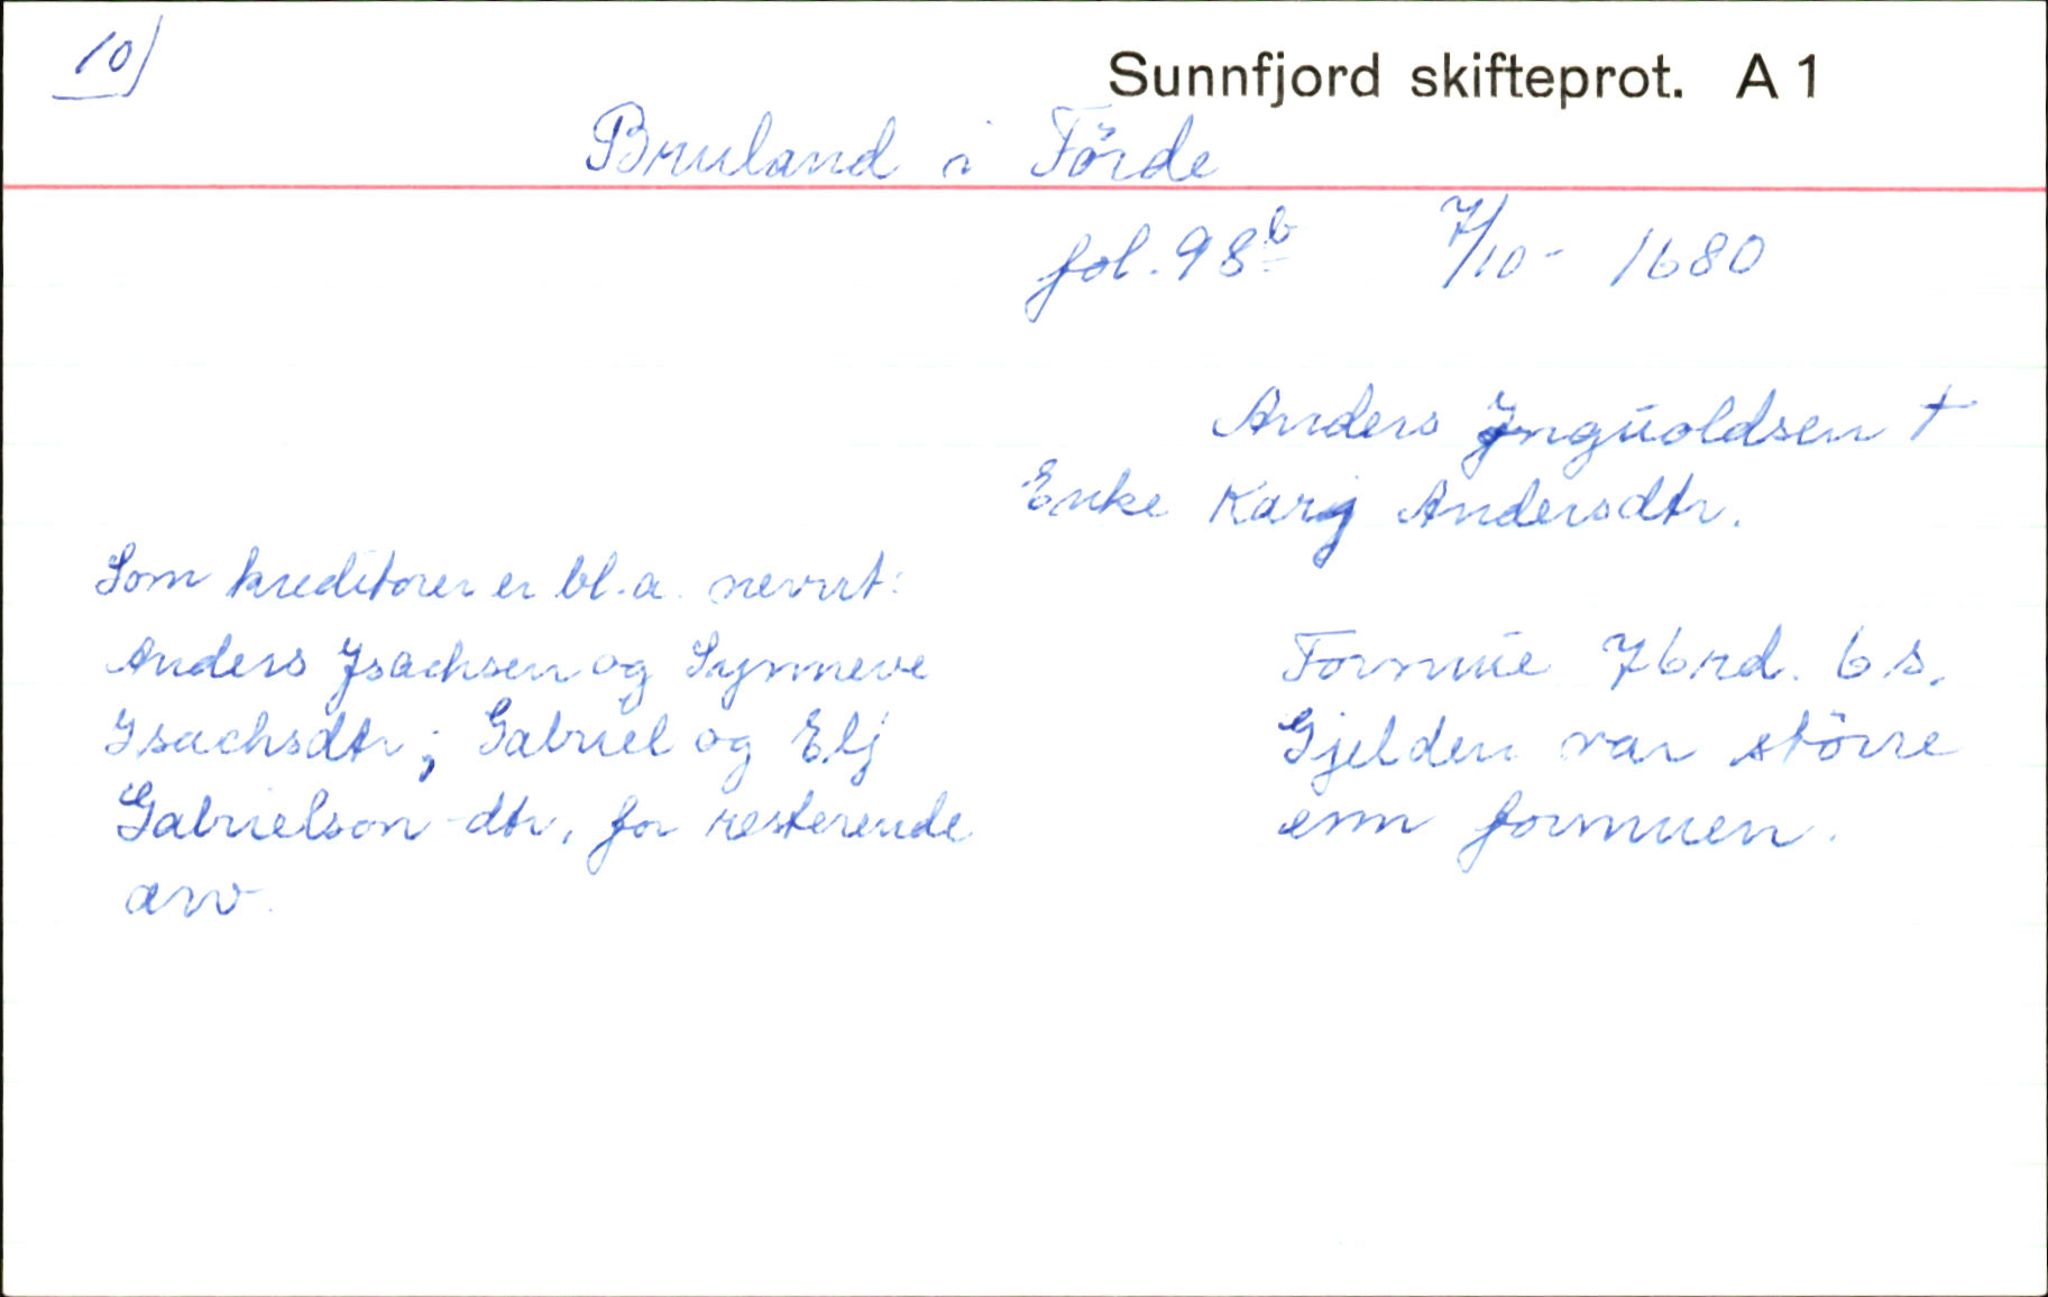 10)
Sunnfjord skifteprot. A 1
Bruland i Förde
fol. 98b 7/10- 1680
Anders Jnguoldsen †
Enke Karj Andersdtr.
Som kreditorer er bl.a. nevnt:
Anders Jsachsen og Synneve
Isachsdtr; Gabriel og Elj
Gabrielson -dtr, for resterende
arv.
Formue 76 rd. 6 s.
Gjelden var större
enn formuen.